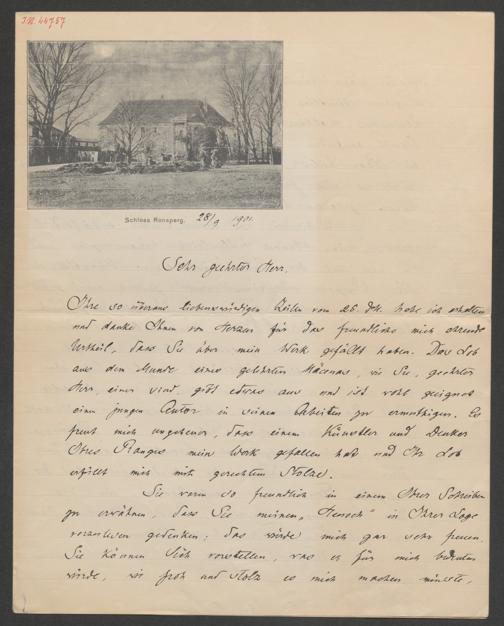 I.N. 44757
Schloss Ronsperg. 28/9 1901.
Sehr geehrter Herr.
Ihre so überaus liebenswürdigen Zeilen vom 26. dM. habe ich erhalten
und danke Ihnen von Herzen für das freundliche mich ehrende
Urtheil, dass Sie über mein Werk gefällt haben. Das Lob
aus dem Munde eines gelehrten Mäcenas, wie Sie, geehrter
Herr, einer sind, gibt etwas aus und ist wohl geeignet
einen jungen Autor in seinen Arbeiten zu ermuthigen. Es
freut mich ungeheuer, dass einem Künstler und Denker
Ihres Ranges mein Werk gefallen hat und Ihr Lob
erfüllt mich mit gerechtem Stolze.
Sie waren so freundlich in einem Ihrer Schreiben
zu erwähnen, dass Sie meinen in Ihrer Loge
vorzulesen gedenken; das würde mich gar sehr freuen.
Sie können Sich vorstellen, was es für mich bedeuten
würde, wie froh und stolz es mich machen müsste,